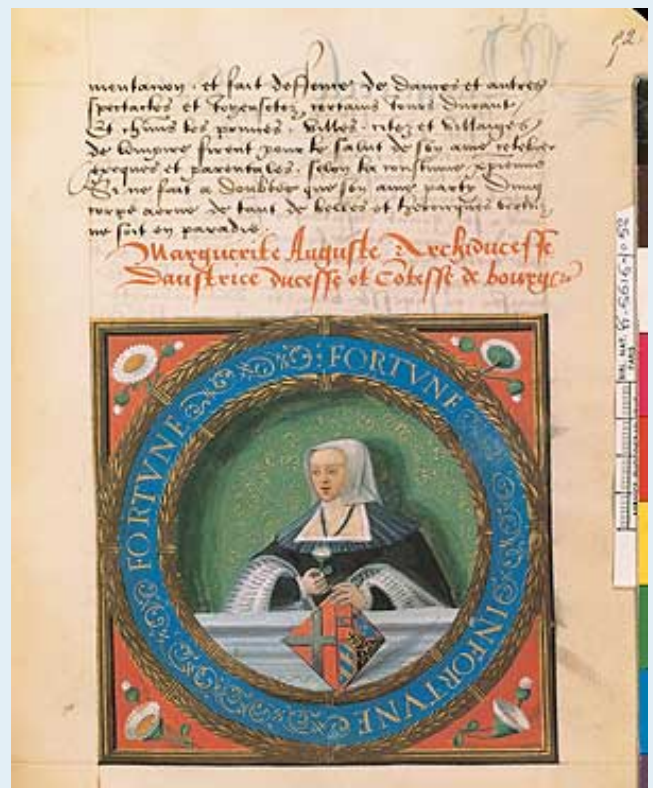 92.
mentacion. et fait deffence de dames et autres
spectacles et Joyeusetez certains Jours durant
Et chūns les princes. Villes. citez et Villaiges
de lempire firent pour le salut de son ame celebrer
exeques et parentales. selon la coustume xp̄ienne
Si ne fait a doubter que son ame party dung
corps aorne de tant de belles et heroicques vertuz
ne soit en paradis.
Marguerite Auguste Archiducesse
Daustrice ducesse et Cōtesse de bourg
FORTVNE
INFORTVNE
FORTVNE
BIBL. NAT.
PARIS